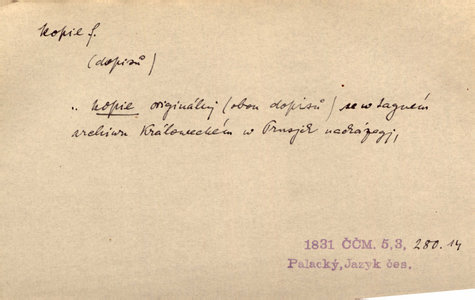 kopie f.
(dopisů)
„ kopie originálnj (obou dopisů) se w tagném
archiwu Králoweckém w Prusjch nacházegj,
1831 ČČM. 5,3, 280.14
Palacký, Jazyk čes.